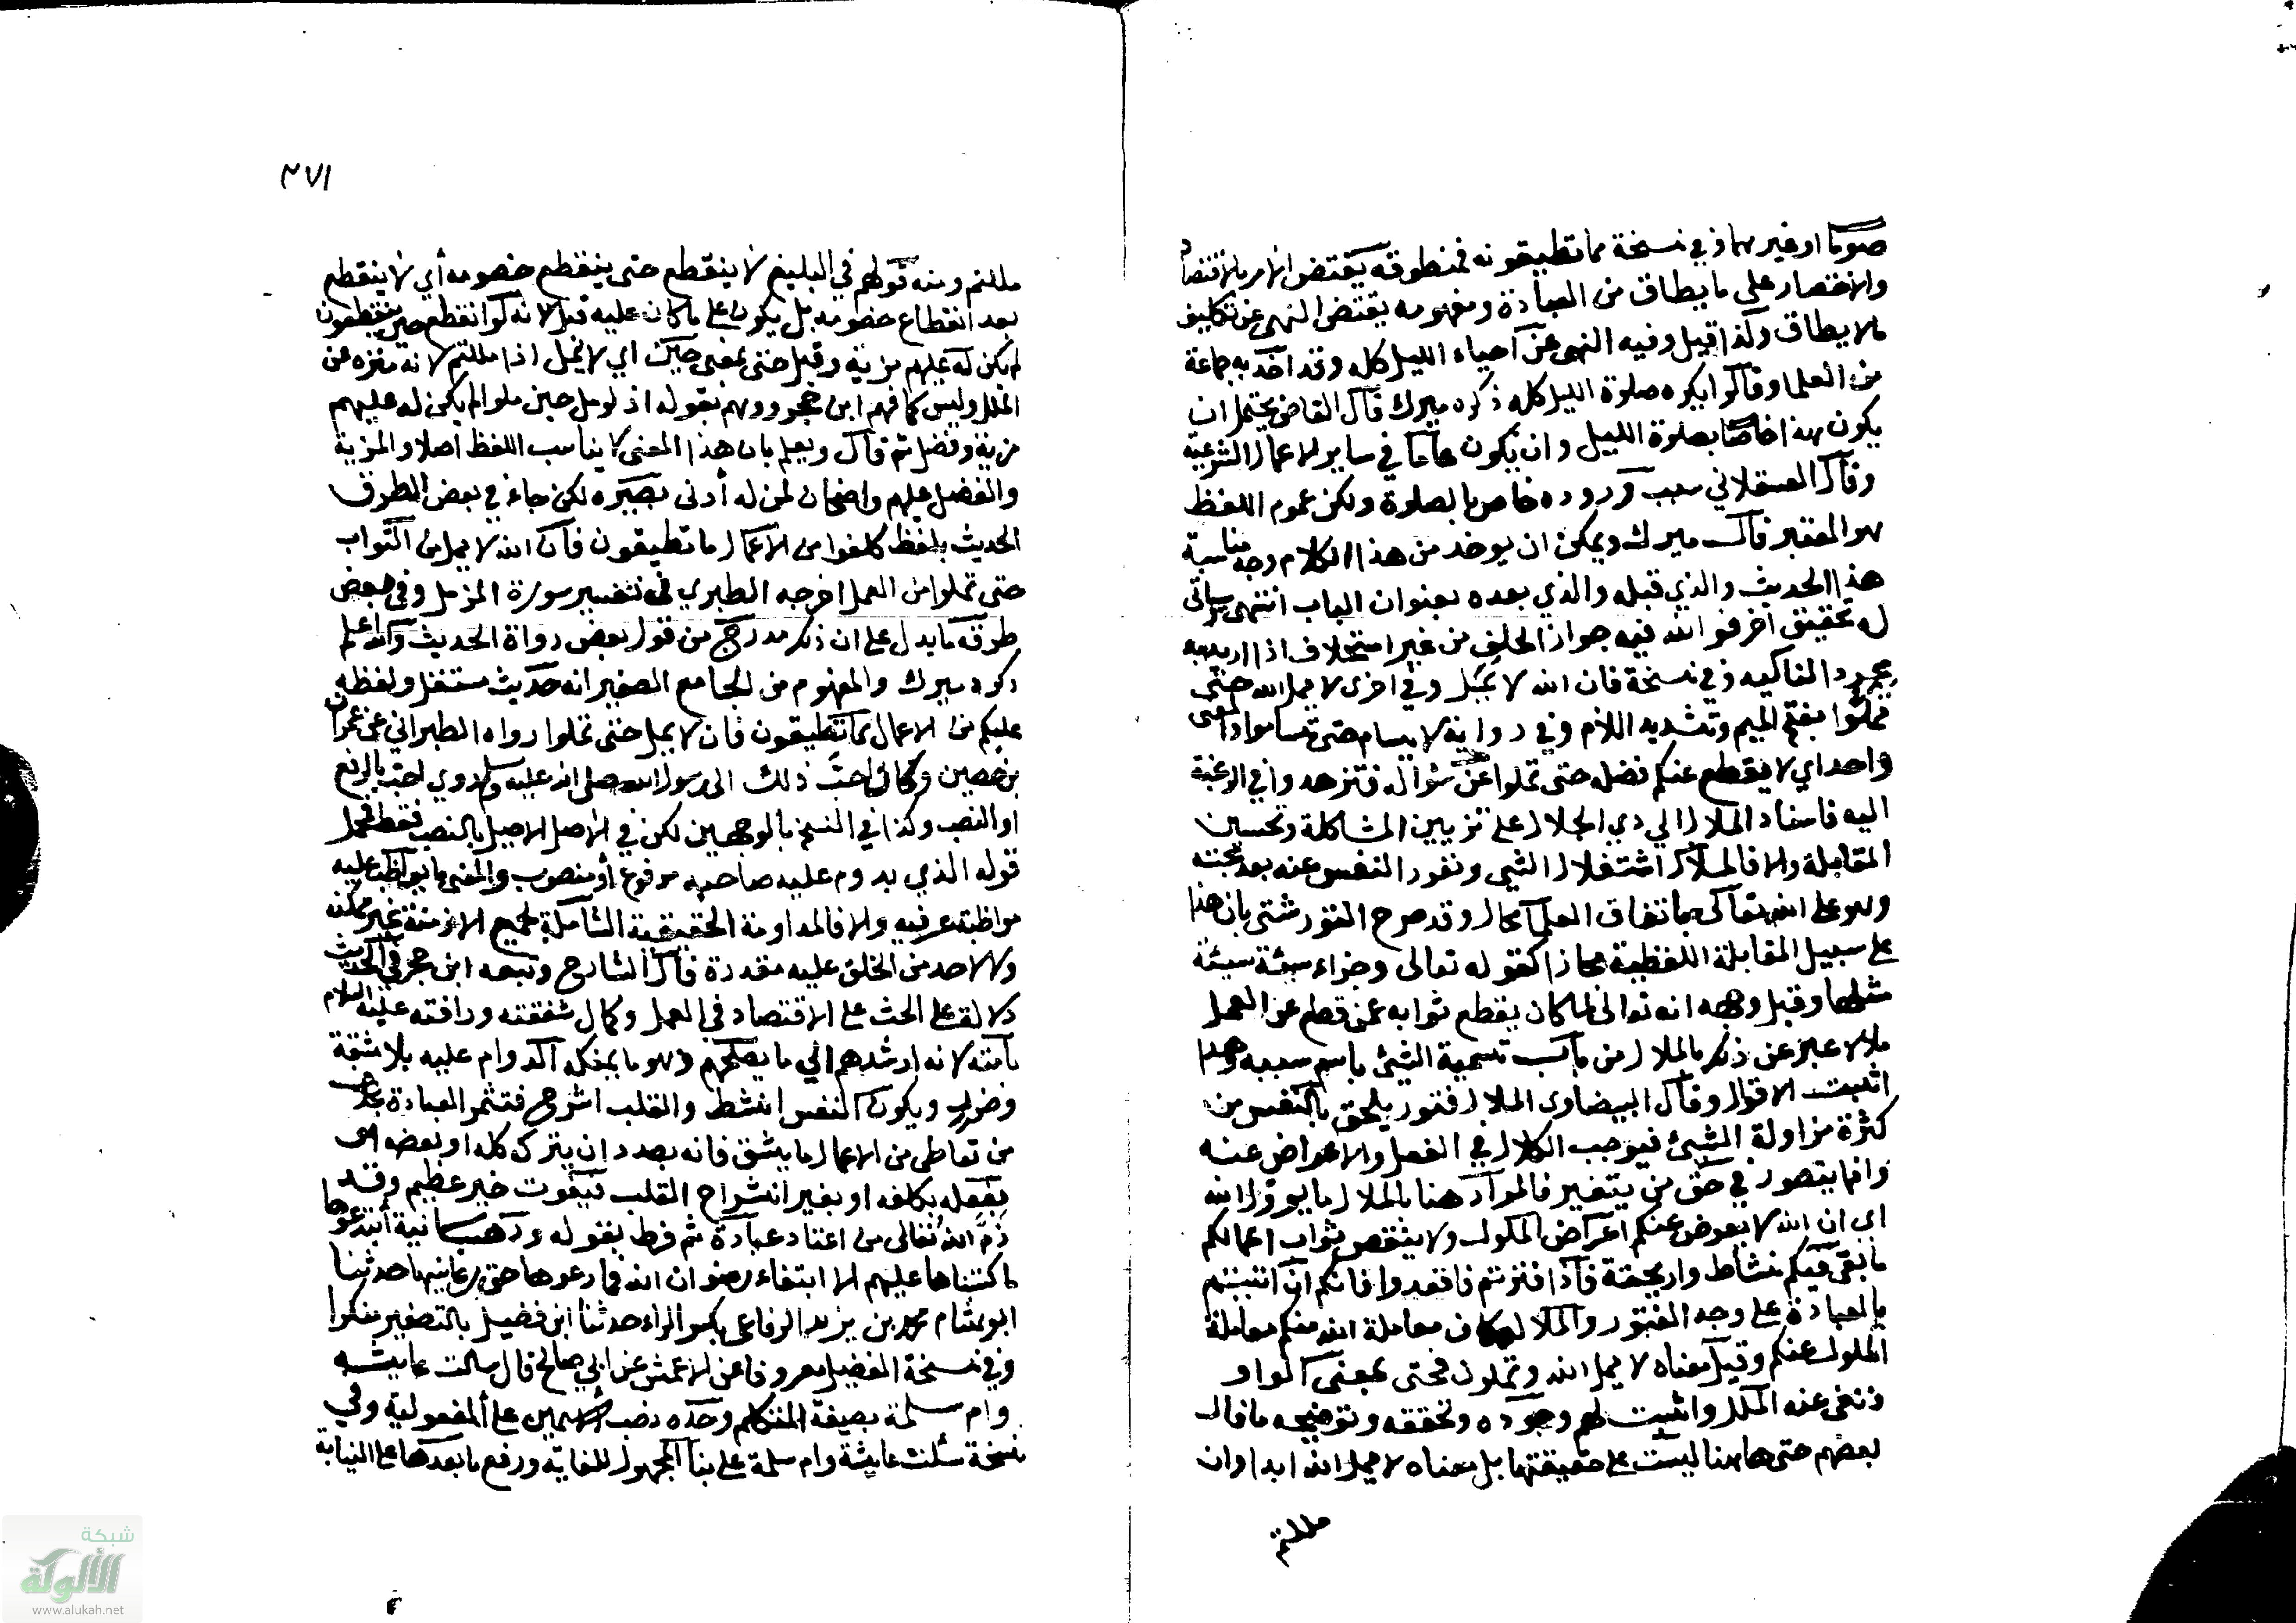 صوما او غيرهما وفي نسخة مما تطيقونه فمنطوقه يقتضي الامر بالاقتصاد
والاختصار على ما يطاق من العبادة ومفهومه يقتضي النهي عن تكليف
ما لا يطاق وكذا قيل وفيه النهي عن احياء الليل كله وقد اخذ به جماعة
من العلما وقالوا يكره صلوة الليل كله ذكره ميرك قال القاضي يحتمل ان
يكون هذا خاصا بصلوة الليل وان يكون عاما في ساير الاعمال الشرعية
وقال العسقلاني سبب وروده خاص بالصلوة ولكن عموم اللفظ
هو المعتبر قال ميرك ويمكن ان يوخذ من هذا الكلام وجه مناسبة
هذا الحديث والذي قبله والذي بعده بعنوان الباب انتهى وسياتي
له تحقيق اخر فوالله فيه جواز الحلف من غير استحلاف اذا اريد به
مجرد التاكيد وفي نسخة فان الله لا يمل وفي اخرى لا يمل الله حتى
تملوا بفتح الميم وتشديد اللام وفي رواية لا يسام حتى تساموا والمعنى
واحد اي لا يقطع عنكم فضله حتى تملوا عن سواله فتزهدوا في الرغبة
اليه فاسناد الملال الي ذي الجلال على تزيين المشاكلة وتحسين
المقابلة والا فالملال استثقال الشي ونفور النفس عنه بعد محبته
وهو على الله تعالى باتفاق العلما محال وقد صرح التوربشتي بان هذا
على سبيل المقابلة اللفظية مجازا كقوله تعالى وجزاء سيئة سيئة
مثلها وقيل وجهه انه تعالى لما كان يقطع ثوابه عمن قطع عن العمل
ملالا عبر عن ذلك بالملال من باب تسمية الشئ باسم سببه وهذا
اثبت الاقوال وقال البيضاوي الملال فتور يلحق بالنفس من
كثرة مزاولة الشئ فيوجب الكلال في الفعل والاعراض عنه
وانما يتصور في حق من يتغير فالمراد هنا بالملال ما يوول اليه
اي ان الله لا يعرض عنكم اعراض الملول ولا ينقص ثواب اعمالكم
ما بقي فيكم نشاط واريحية فاذا فترتم فاقعدوا فانكم ان اتيتم
بالعبادة على وجه الفتور والملال كان معاملة الله منكم معاملة
الملول عنكم وقيل معناه لا يمل الله وتملون فحتى بمعنى الواو
فنفى عنه الملل واثبت لهم وجوده وتحققه وتوضيحه ما قال
بعضهم حتى هاهنا ليست على حقيقتها بل معناه لا يمل الله ابدا وان
مللتم
٢٧١
مللتم ومنه قولهم في البليغ لا ينقطع حتى ينقطع خصومه أي لا ينقطع
بعد انقطاع خصومه بل يكون على ما كان عليه قبل لانه لو انقطع حين ينقطعون
لم يكن له عليهم مزية وقيل حتى بمعنى حين اي لا يمل اذا مللتم لانه منزه عن
الملل وليس كما فهم ابن حجر ووهم بقوله اذ لو مل حين ملوا لم يكن له عليهم
مزية وفضل ثم قال ويعلم بان هذا المعنى لا يناسب اللفظ اصلا والمزية
والفضل عليهم واضحان لمن له أدنى بصيرة لكن جاء في بعض الطرق
الحديث بلفظ كلفوا من الاعمال ما تطيقون فان الله لا يمل من الثواب
حتى تملوا من العمل اخرجه الطبري في تفسير سورة المزمل وفي بعض
طرقه ما يدل على ان ذلك مدرج من قول بعض رواة الحديث والله اعلم
ذكره ميرك والمفهوم من الجامع الصغير انه حديث مستقل ولفظه
عليكم من الاعمال بما تطيقون فان لا يمل حتى تملوا رواه الطبراني عن عمران
بن حصين وكان احب ذلك الى رسول الله صلى الله عليه وسلم وروي احب بالرفع
او النصب وكذا في النسخ بالوجهين لكن في الاصل الاصيل بالنصب فقط فمحل
قوله الذي يدوم عليه صاحبه مرفوع أو منصوب والمعنى ما يواظب عليه
مواظبة عرفية والا فالمداومة الحقيقية الشاملة لجميع الازمنة غير ممكنة
ولا لاحد من الخلق عليه مقدرة قال الشارح وتبعه ابن حجر في الحديث
دلالة على الحث على الاقتصاد في العمل وكمال شفقته ورافته عليه السلام
بامته لانه ارشدهم الي ما يصلحهم وهو ما يمكنه الدوام عليه بلا مشقة
وضرر ويكون النفس انشط والقلب اشرح فتثمر العبادة بخلاف
من تعاطى من الاعمال ما يشق فانه بصدد ان يترك كله او بعضه او
يفعله بكلفه او بغير انشراح القلب فيفوت خير عظيم وقد
ذم الله تعالى من اعتاد عبادة ثم فرط بقوله ورهبانية ابتدعوها
ما كتبناها عليهم الا ابتغاء رضوان الله فما رعوها حق رعايتها حدثنا
ابو هشام محمد بن يزيد الرفاعي بكسر الراء حدثنا ابن فضيل بالتصغير منكرا
وفي نسخة الفضيل معروفا عن الاعمش عن ابي صالح قال سالت عايشة
وام سلمة بصيغة المتكلم وحده ونصب الاسمين على المفعولية وفي
نسخة سئلت عايشة وام سلمة على بناء المجهول للغايبة ورفع ما بعدها على النيابة
شبكة
الألوكة
www.alukah.net